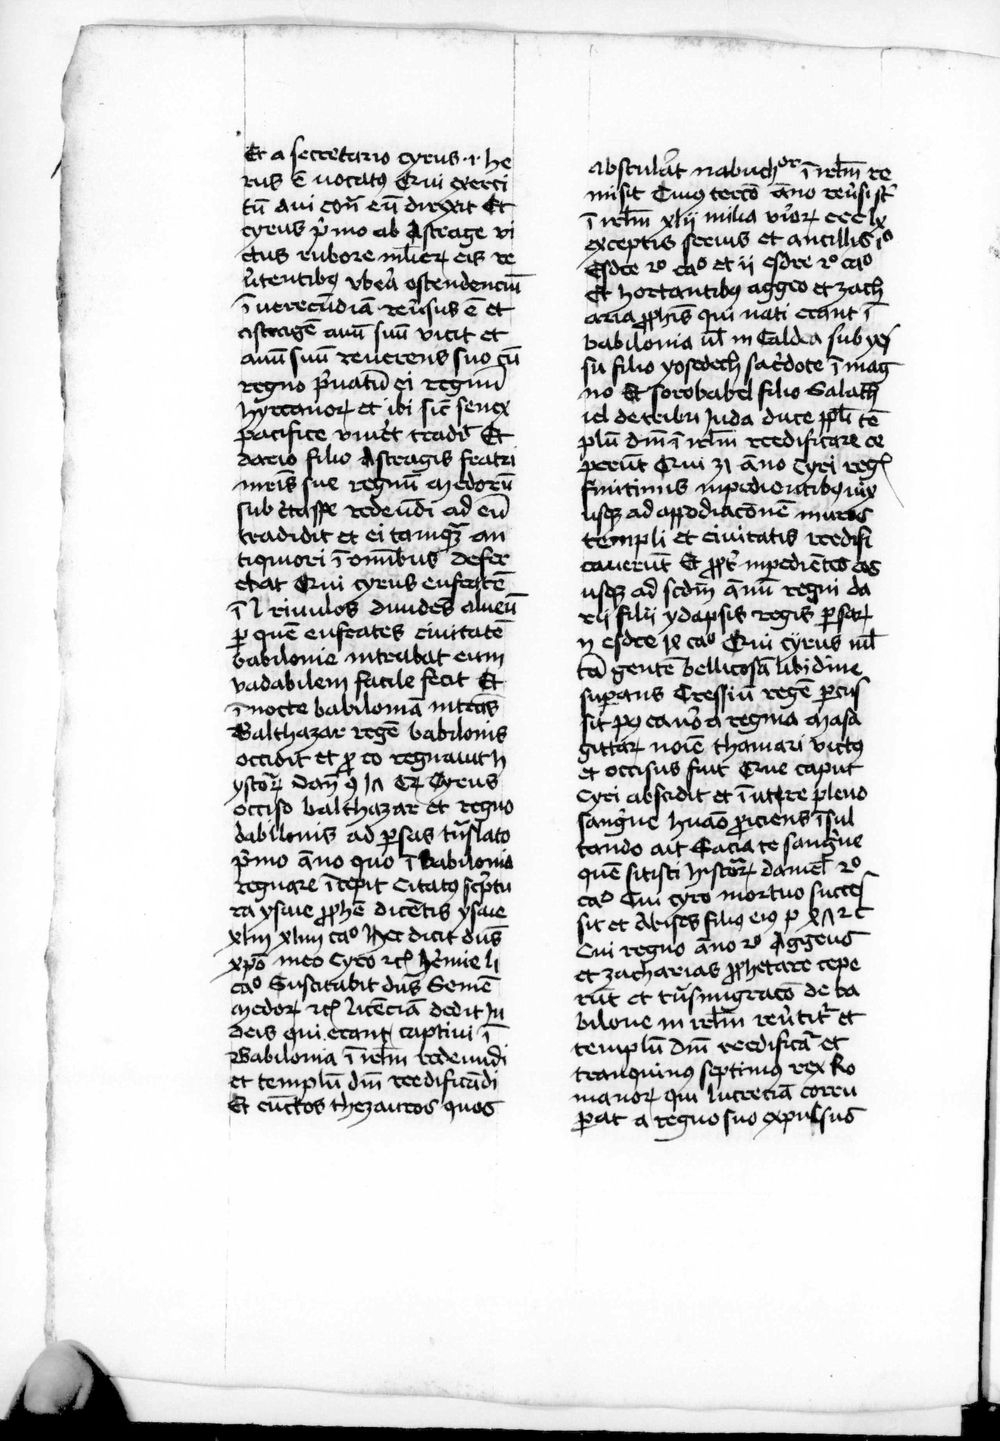 Et a secretario cyrus .i. he
rus ē vocatꝰ Qui exerci
tū avi cont̄ eū direxit Et
cyrus p̄mo ab Astrage vi
ctus rubore ml̄ieꝝ eis re
v̄tentibꝰ vbera ostendenciū
ī verecūdiā reūsus ē et
astragē auū suū vicit et
auū suū reverens suo cū
regno p̄vatū ei regnū
hyrcanoꝝ et ibi sic̄ senex
pacifice viuēt tradit̄ Et
dario filio Astragis fratri
mr̄is sue regnū medorū
sub redeūdi ad eū
tradidit et ei tamqꝫ an
tiquiori ī om̄ibus defer
ebat Qui cyrus eufratē
ī l riuulos diuidēs alueū
ꝑ quē eufrates ciuitatē
babilonie intrabat eum
vadabilem facile fecit Et
ī nocte babiloniā intrās
Balthazar regē babilonis
occidit et ꝓ eo regnavit h
ystoꝝ dan̄ Cyrus
occiso balthazar et regno
babilonis ad ꝑsas tn̄slato
p̄mo āno quo ī babilonia
regnare īcepit Citatꝰ sc̄ptu
ra ysaie ꝓphē dicētis ysaie
xliii xliiii caº hec dicit dūs
xp̄o meo Cyro ⁊c̄ h̄emie li
caº Suscitabit dūs Semē
medoꝝ ⁊c̄ licēciā dedit Iu
deis qui erant captiui ī
Babilonia ī irl̄m redeundi
et templū dm̄ reedificādi
Et cunctos thezauros quos
abstulāt nabuchºʳ ī irl̄m re
misit Cuius tercō āno reūsi st̄
ī irl̄m xlii milia viroꝝ ccc lx
exceptis servis et ancillis iº
Esdre 2º caº et ii esdre 2º caº
Et hortantibꝰ aggeo et zach
aria ꝓphis qui nati erant ī
babilonia ul̄ in Caldea sub yes
su filio yosedech sac̄dote ī mag
no Et sorobabel filio Salath
iel de tribu Iuda duce ppl̄i tē
plū dm̄ ī irl̄m reedificare ce
perūt Qui āno Cyri reḡ
finitimis inpedientibꝰ vix
usqꝫ ad appodiacōnē muros
templi et ciuitatis reedifi
cauerūt Et ꝓpt̄ inpediētes eos
usqꝫ ad scd̄m annū regni da
rii filii ydapsis regis ꝑsaꝝ
ii esdre ix caº Qui cyrus ml̄
tā gentē bellicosā libidine
suꝑans Cressiū regē ꝑcus
sit postea vo a regina masa
gittaꝝ noīe thamari victꝰ
et occisus fuit Que caput
Cyri abscidit et ī utre pleno
sangīne huāo ꝓiciens īsul
tando ait Sacia te sangīne
quē sitisti histoꝝ daniel 2º
caº Cui cyro mortuo succes
sit et filiꝰ eiꝰ
Cui regno āno 2º Aggeus
et zacharias ꝓphetare cepe
rūt et tn̄smigracō de ba
bilone in irl̄m reūtit̄ et
templū dm̄ reedificāt et
tranquinꝰ septimus rex Ro
manoꝝ qui lucreciā corru
perat a regno suo expulsus